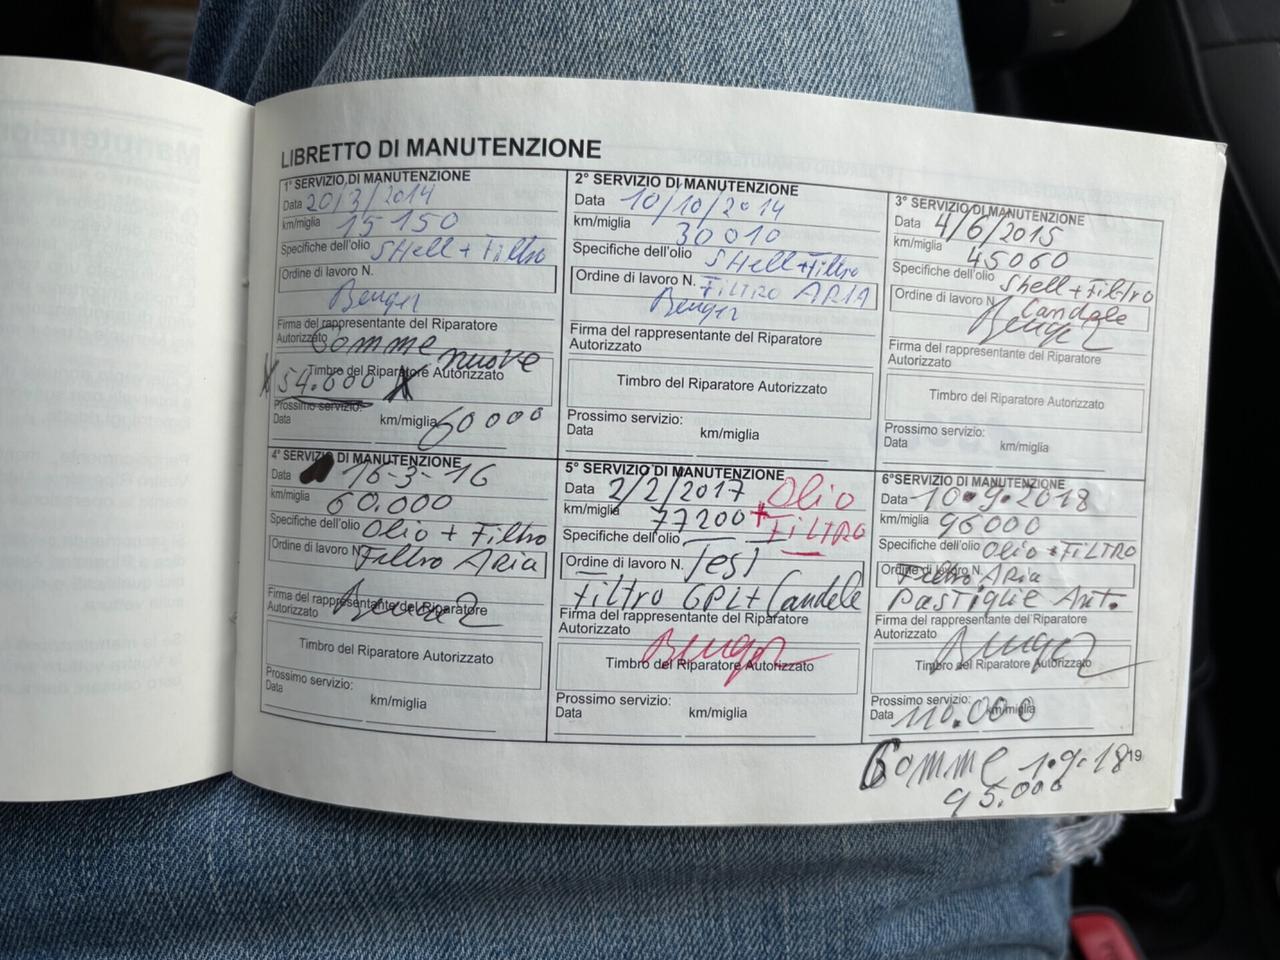 LIBRETTO DI MANUTENZIONE
1° SERVIZIO DI MANUTENZIONE
Data 20/3/2014
km/miglia 15 150
Specifiche dell'olio SHell + Filtro
Ordine di lavoro N.
Firma del rappresentante del Riparatore
Autorizzato Gomme nuove
Timbro del Riparatore Autorizzato
X 54.000 X
Prossimo servizio:
Data km/miglia 60000
2° SERVIZIO DI MANUTENZIONE
Data 10/10/2014
km/miglia 30 010
Specifiche dell'olio SHell + Filtro
Ordine di lavoro N. FILTRO ARIA
Firma del rappresentante del Riparatore
Autorizzato
Timbro del Riparatore Autorizzato
Prossimo servizio:
Data km/miglia
3° SERVIZIO DI MANUTENZIONE
Data 4/6/2015
km/miglia 45060
Specifiche dell'olio Shell + Filtro
Ordine di lavoro N. Candele
Firma del rappresentante del Riparatore
Autorizzato
Timbro del Riparatore Autorizzato
Prossimo servizio:
Data km/miglia
4° SERVIZIO DI MANUTENZIONE
Data 16-3-16
km/miglia 60.000
Specifiche dell'olio Olio + Filtro
Ordine di lavoro N. Filtro ARia
Firma del rappresentante del Riparatore
Autorizzato
Timbro del Riparatore Autorizzato
Prossimo servizio:
Data km/miglia
5° SERVIZIO DI MANUTENZIONE
Data 2/2/2017 Olio
km/miglia 77200 + FILTRO
Specifiche dell'olio
Ordine di lavoro N.
Filtro GPL + Candele
Firma del rappresentante del Riparatore
Autorizzato
Timbro del Riparatore Autorizzato
Prossimo servizio:
Data km/miglia
6° SERVIZIO DI MANUTENZIONE
Data 10.9.2018
km/miglia 96000
Specifiche dell'olio Olio + FILTRO
Ordine di lavoro N. Filtro ARia
PASTIGLIE Ant.
Firma del rappresentante del Riparatore
Autorizzato
Timbro del Riparatore Autorizzato
Prossimo servizio:
Data 110.000 km/miglia
19
Gomme 1.9.18
95.000